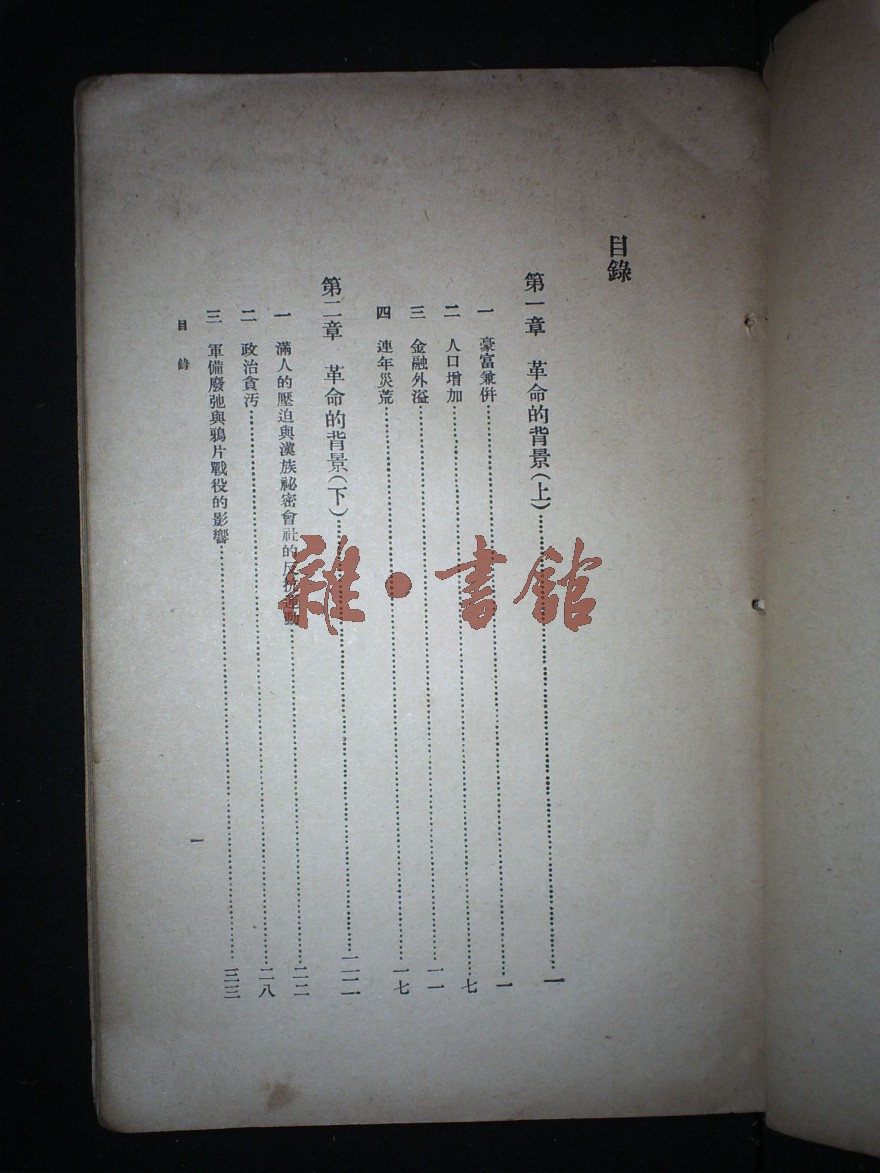 目錄
第一章 革命的背景(上)……一
一 豪富兼併……一
二 人口增加……七
三 金融外溢……一一
四 連年災荒……一七
第二章 革命的背景(下)……二二
一 滿人的壓迫與漢族祕密會社的反抗運動……二二
二 政治貪汚……二八
三 軍備廢弛與鴉片戰役的影響……三三
目錄
一
雜·書館